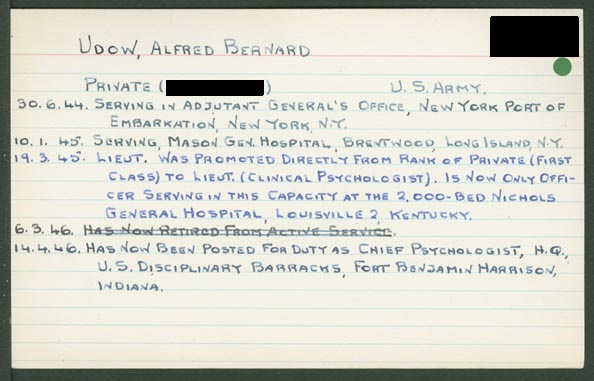 UDOW, ALFRED BERNARD
PRIVATE ( ) U.S. ARMY.
30.6.44. SERVING IN ADJUTANT GENERAL'S OFFICE, NEW YORK PORT OF
EMBARKATION, NEW YORK, N.Y.
10.1.45. SERVING, MASON GEN. HOSPITAL, BRENTWOOD, LONG ISLAND, N.Y.
19.3.45. LIEUT. WAS PROMOTED DIRECTLY FROM RANK OF PRIVATE (FIRST
CLASS) TO LIEUT. (CLINICAL PSYCHOLOGIST). IS NOW ONLY OFFI-
CER SERVING IN THIS CAPACITY AT THE 2,000-BED NICHOLS
GENERAL HOSPITAL, LOUISVILLE 2, KENTUCKY.
6.3.46. HAS NOW RETIRED FROM ACTIVE SERVICE.
14.4.46. HAS NOW BEEN POSTED FOR DUTY AS CHIEF PSYCHOLOGIST, H.Q.,
U.S. DISCIPLINARY BARRACKS, FORT BENJAMIN HARRISON,
INDIANA.